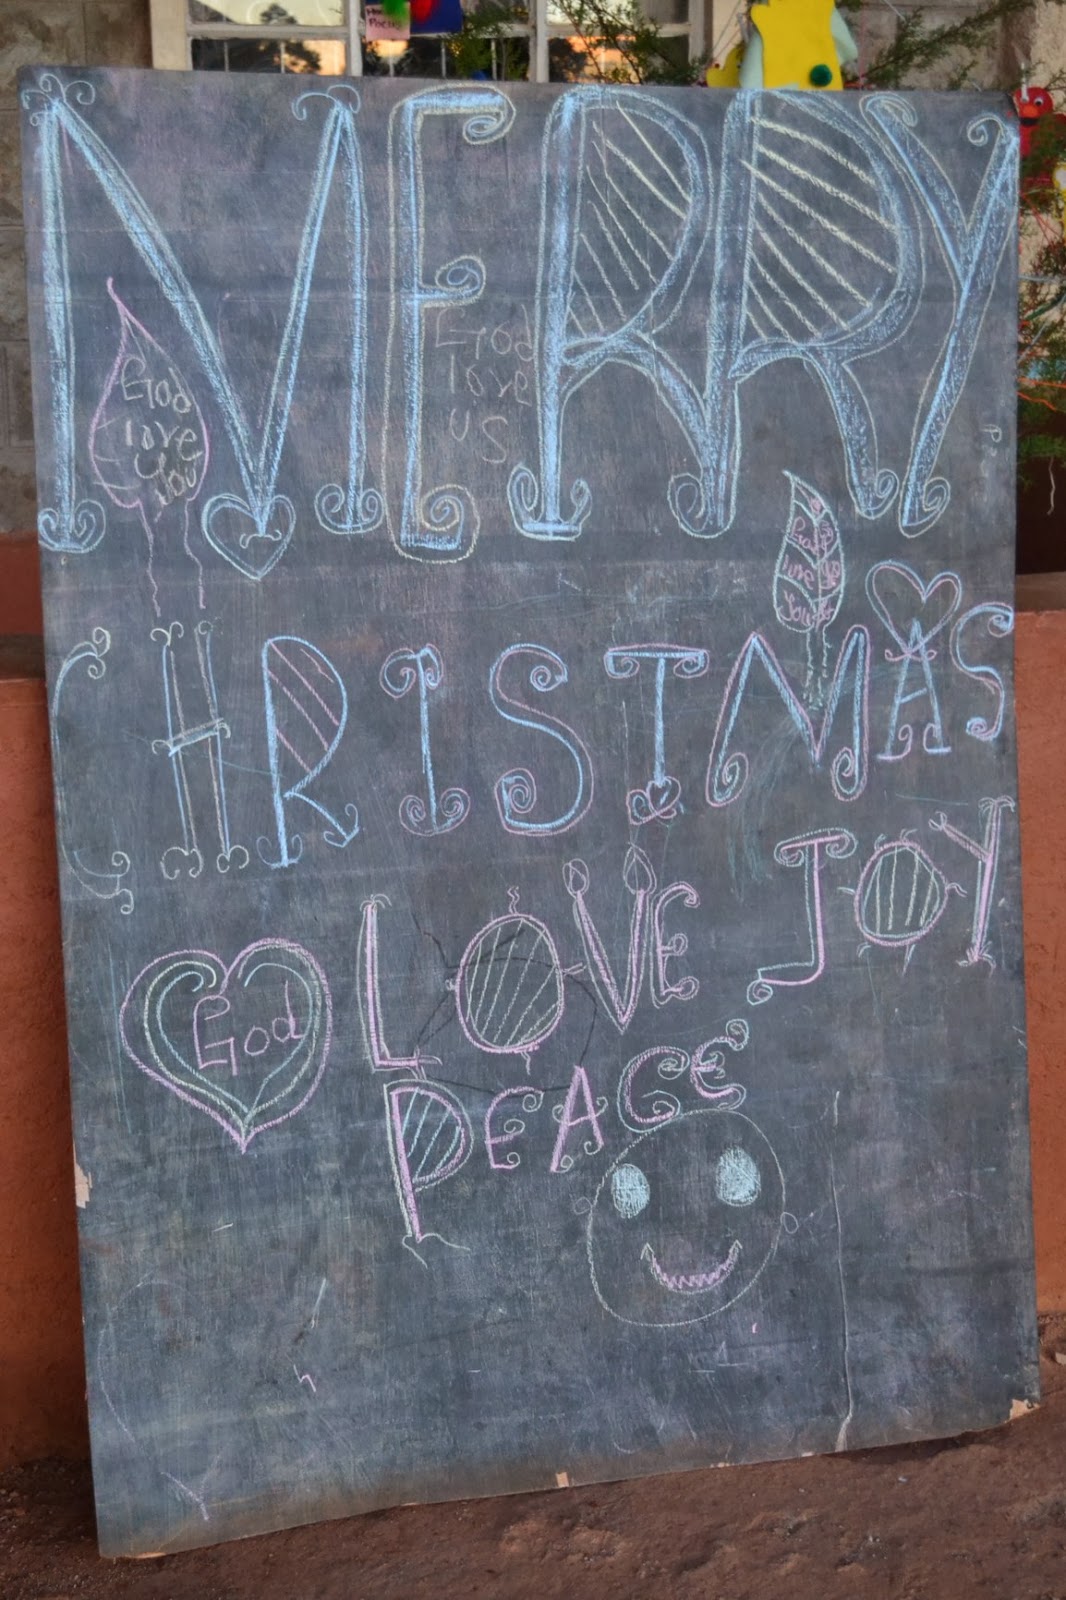 MERRY
God
love
you
God
love
us
God
love
you
CHRISTMAS
LOVE JOY
God
PEACE